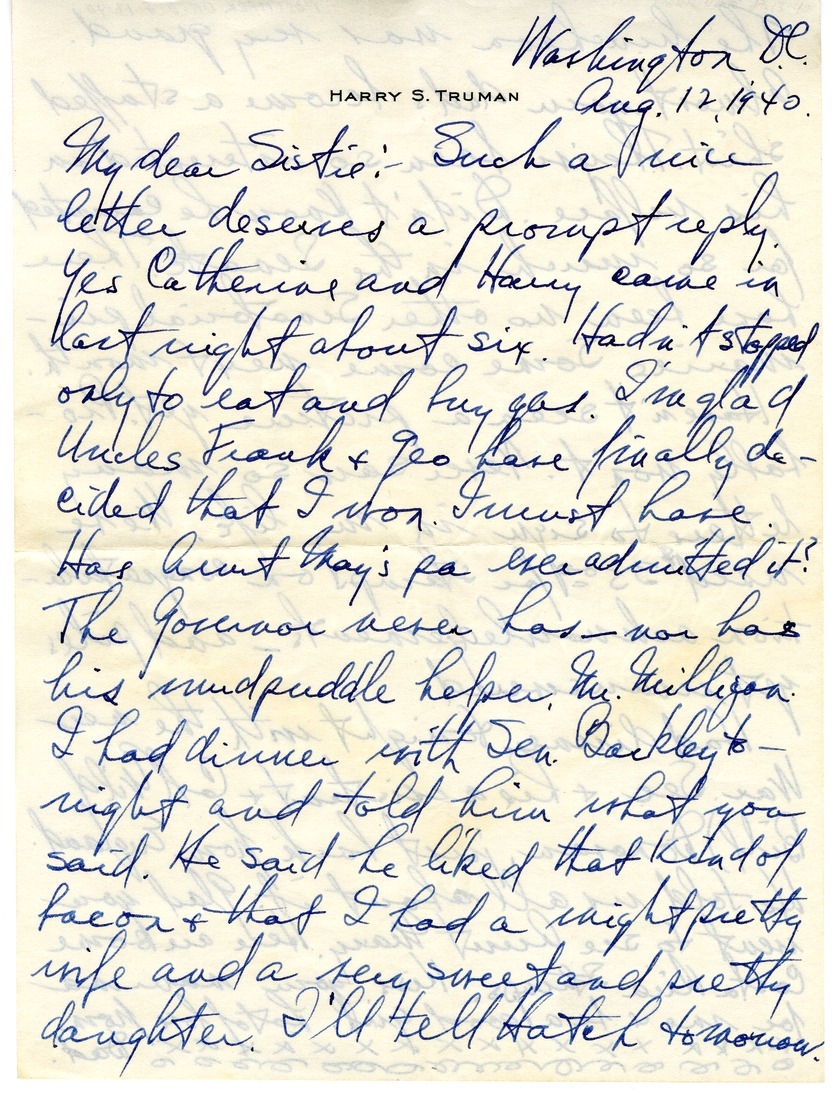 Washington, D.C.
HARRY S. TRUMAN
Aug. 12, 1940.
My dear Sistie:- Such a nice
letter deserves a prompt reply.
Yes Catherine and Harry came in
last night about six. Hadn't stopped
only to eat and buy gas. I'm glad
Uncles Frank & Geo have finally de-
cided that I won. I must have.
Has Aunt May's pa ever admitted it?
The Governor never has—nor has
his mudpuddle helper, Mr. Milligan.
I had dinner with Sen. Barkley to-
night and told him what you
said. He said he liked that kind of
bacon & that I had a might pretty
wife and a very sweet and pretty
daughter. I'll tell Hatch tomorrow.